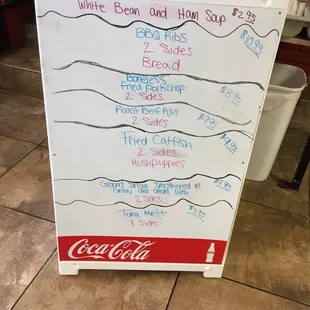 White Bean and Ham Soup $2.95
BBQ Ribs $10.95
2 Sides
Bread
Boneless
fried porkchop $8.95
2 Sides
Roast Beef Ajus
2 Sides
Fried Catfish
2 Sides
Hushpuppies
Ground Sirloin Smothered in
Gravey and onions with
2 Sides
Tuna Melt
1 Side
Coca-Cola